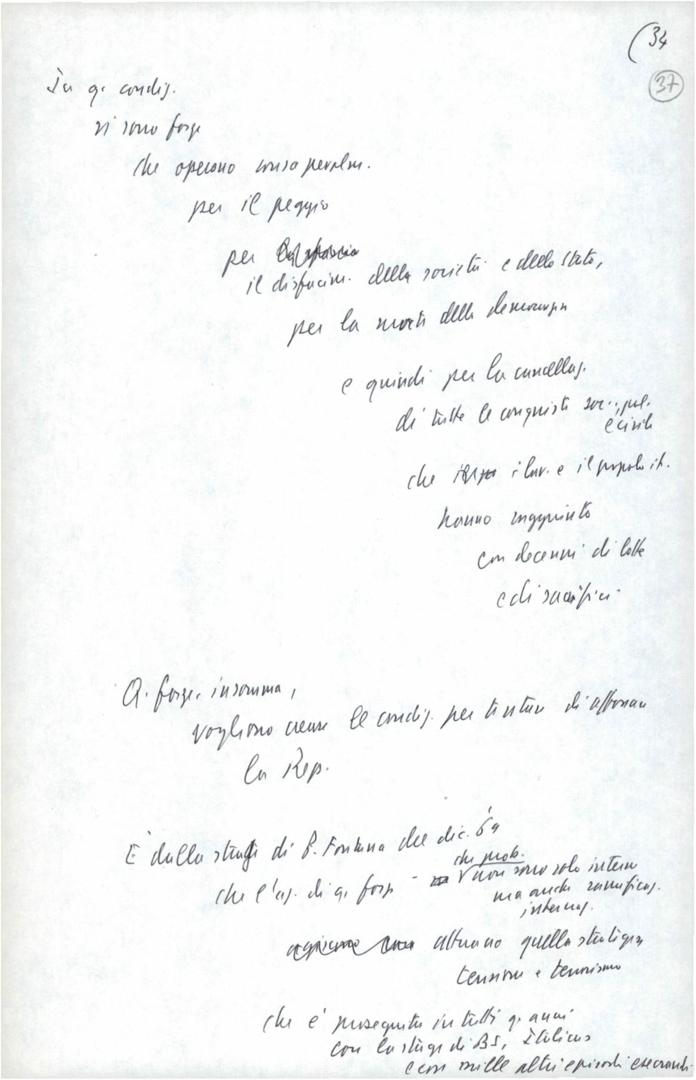 (34
37
In q. condiz.
vi sono forze
che operano consapevolm.
per il peggio
per
il disfacim. della società e dello stato,
per la morte della democrazia
e quindi per la cancellaz.
di tutte le conquiste soc., pol.
e civili
che i lav. e il popolo it.
hanno
con decenni di lotte
e di sacrifici.
Q. forze, insomma,
vogliono creare le condiz. per tentare di affossare
la Rep.
È dalla strage di P. Fontana del dic. 69
che prob.
che l'az. di q. forze - non sono solo interne
ma anche ramificaz.
internaz.
attuano quella strategia
tensione e terrorismo
che è proseguita in tutti q. anni
con la strage di BS, Italicus
e con mille altri episodi esecrandi